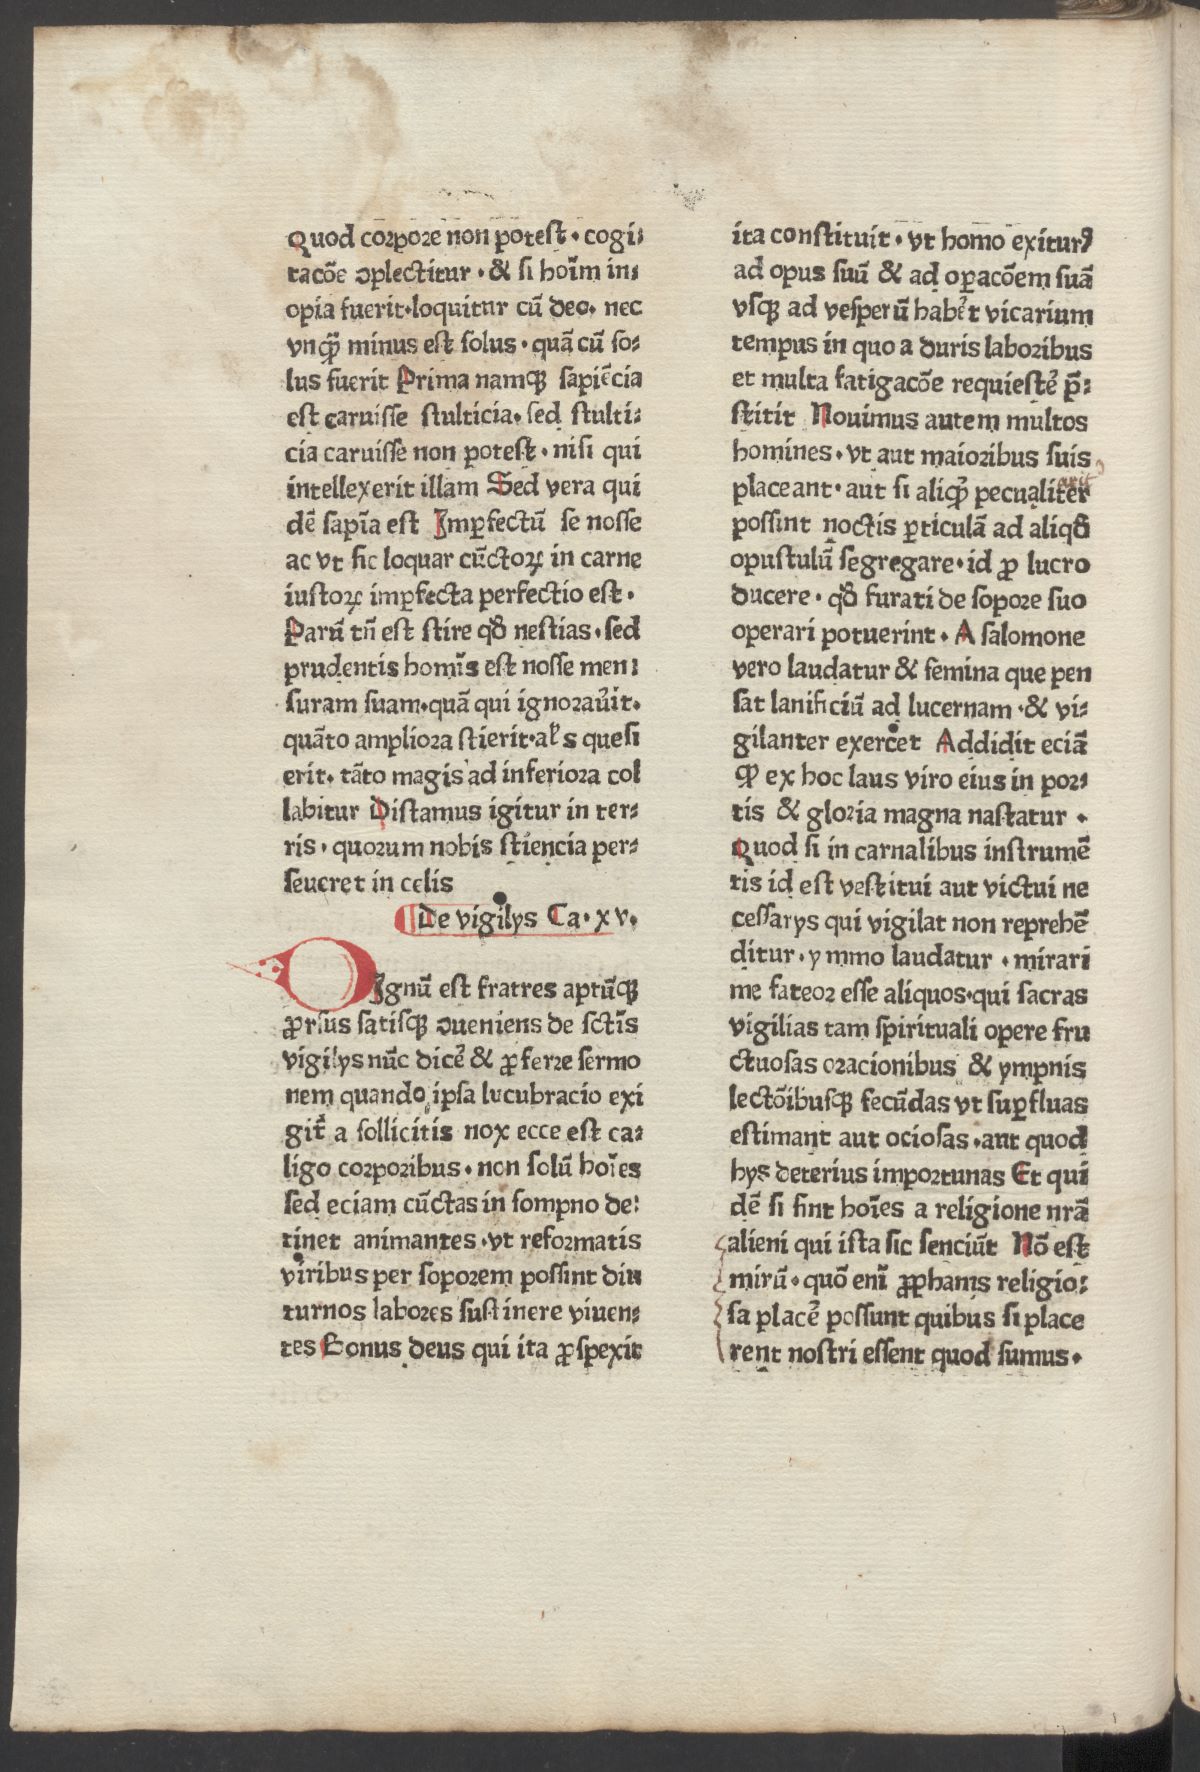 Quod corpore non potest · cogi-
tacōe ꝯplectitur · & si hoīm in-
opia fuerit · loquitur cū deo · nec
vnqꝫ minus est solus · quā cū so-
lus fuerit Prima namqꝫ sapiēcia
est caruisse stulticia · sed stulti-
cia caruisse non potest · nisi qui
intellexerit illam Sed vera qui
dē sapīa est Imꝑfectū se nosse
ac vt sic loquar cūctoꝝ in carne
iustoꝝ imꝑfecta perfectio est ·
Parū tn̄ est scire qđ nescias · sed
prudentis homīs est nosse men-
suram suam · quā qui ignorau̓it ·
quāto ampliora scierit · al̓s quesi
erit · tāto magis ad inferiora col
labitur Discamus igitur in ter-
ris · quorum nobis sciencia per-
seueret in celis
De vigilys Ca · xv ·
DIgnū est fratres aptūqꝫ
ꝓrsus satisqꝫ ꝯueniens de sctīs
vigilys nūc dicē & ꝓferre sermo
nem quando ipsa lucubracio exi
git̄ a sollicitis nox ecce est ca-
ligo corporibus · non solū hoīes
sed eciam cūctas in sompno de-
tinet animantes · vt reformatis
viribus per soporem possint diu
turnos labores sustinere viuen-
tes Bonus deus qui ita ꝓspexit
ita constituit · vt homo exiturꝰ
ad opus suū & ad oꝑacōem suā
vsqꝫ ad vesperū hab̓et vicarium
tempus in quo a duris laboribus
et multa fatigacōe requiescē p̄-
stitit Nouimus autem multos
homines · vt aut maioribus suis
placeant · aut si aliqꝫ pecualiter
possint noctis ꝑticulā ad aliqđ
opusculū segregare · id ꝓ lucro
ducere · qđ furati de sopore suo
operari potuerint · A salomone
vero laudatur & femina que pen
sat lanificiū ad lucernam · & vi-
gilanter exercet Addidit eciā
qꝫ ex hoc laus viro eius in por-
tis & gloria magna nascatur ·
Quod si in carnalibus instrumē
tis id est vestitui aut victui ne
cessarys qui vigilat non reprehē
ditur · ymmo laudatur · mirari
me fateor esse aliquos · qui sacras
vigilias tam spirituali opere fru
ctuosas oracionibus & ympnis
lectōibusqꝫ fecūdas vt suꝑfluas
estimant aut ociosas · aut quod
hys deterius importunas Et qui
dē si sint hoīes a religione nrā
alieni qui ista sic senciūt Nō est
mirū · quō enī ꝓphanis religio-
sa placē possunt quibus si place
rent nostri essent quod sumus ·